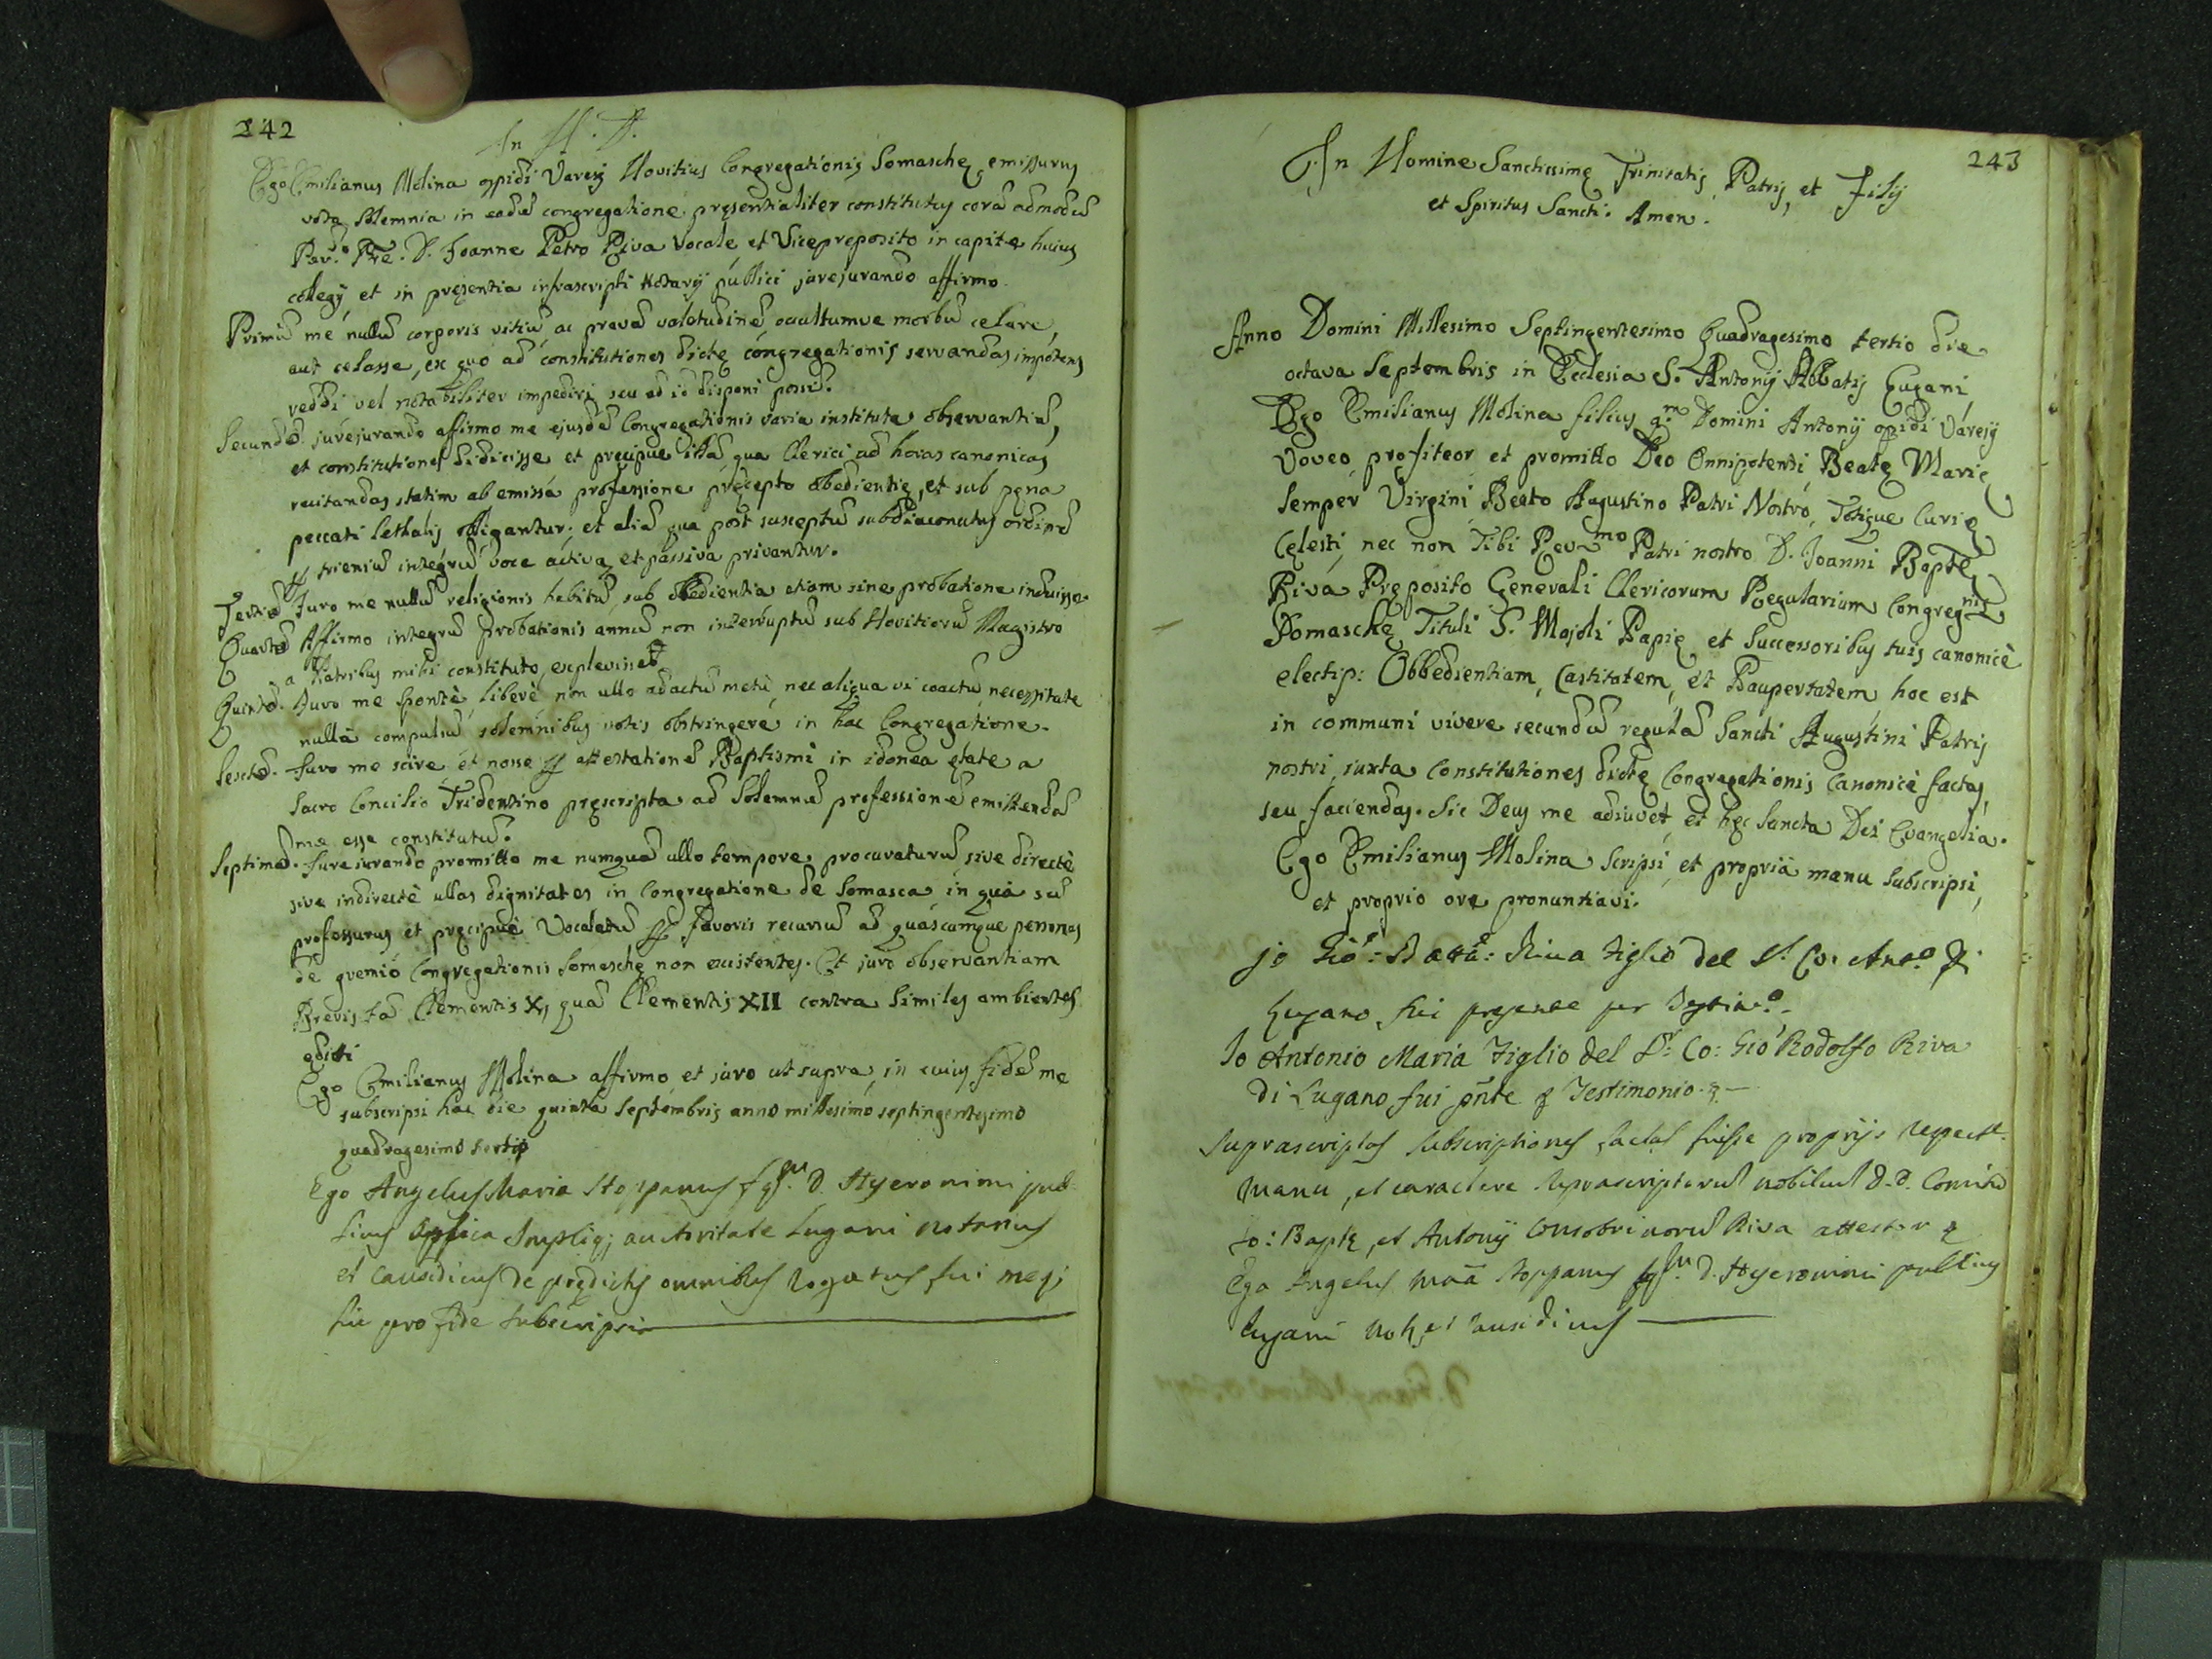 242
In N. D.
Ego Emilianus Molina oppidi Varesij Novitius Congregationis Somaschę emissurus
vota solemnia in eadē congregatione pręsentialiter constitutus corā admodū
Rev.do Pre. D. Joanne Petro Riva Vocale, et Vicepreposito in capite huius
collegÿ et in pręsentia infrascripti Notarÿ publici jurejurando affirmo.
Primū me nullū corporis vitiū ac pravā valetudinē, occultumve morbū celare,
aut celasse, ex quo ad constitutiones dictę congregationis servandas impotens
reddi vel notabiliter impediri seu ad id disponi possē.
Secundō. jurejurando affirmo me ejusdē Congregationis varia instituta observantiā,
et constitutiones didicisse et pręcipue illā qua Clerici ad horas canonicas
recitandas statim ab emissa professione pręcepto obedientię, et sub pęna
peccati lethalis obligantur; et aliā qua post susceptū subdiaconatus ordinē
ꝑ trieniū integrū voce activa, et passiva privantur.
Tertiō Juro me nullū religionis habitū, sub obedientia etiam sine probatione induisse.
Quartō Affirmo integrū probationis annū non interruptū sub Novitiorū Magistro
a Patribus mihi constituto, explevisse
Quintō. Juro me spontè, liberè non ullo adactū metù, nec aliqua vi coactū necessitate
nullâ compulsū solemnibus votis obstringere in hac Congregatione.
Sextō. Juro me scire et nosse ꝑ attestationē Baptismi in idonea ętate a
Sacro Concilio Tridentino pręscripta ad Solemnē professionē emittendā
me esse constitutū.
Septimō. Jureiurando promitto me numquā ullo tempore procuraturū, sive directè
sive indirectè ullas dignitates in Congregatione de Somasca in quâ sū
professurus et pręcipuè Vocalatū ꝑ favoris recursū ad quascumque personas
de gremio Congregationis Somaschę non existentes. Et juro observantiam
Brevis tā Clementis X, quā Clementis XII contra similes ambientes
editi
Ego Emilianus Molina affirmo, et juro ut supra, in cuius fidē me
subscripsi hac die quinta Septembris anno millesimo septingentesimo
quadragesimo tertio
Ego Angelus Maria Stoppanus f. q.m D. Hyeronimi pub
licus Applica Implicq; auctoritate Lugani notarius
et Causidicus de prędictis omnibus rogatus fui meq;
hic pro fide subscripsi
243
In Nomine Sanctissimę Trinitatis, Patris, et Filij
et Spiritus Sancti. Amen.
Anno Domini Millesimo Septingentesimo Quadragesimo tertio die
octava Septembris in Ecclesia S. Antonij Abbatis Lugani
Ego Emilianus Molina filius q.m Domini Antonij opidi Varesij
Voveo, profiteor et promitto Deo Omnipotenti, Beatę Marię
Semper Virgini Beato Augustino Patri Nostro, Totique Curię
Cęlesti, nec non Tibi Rev.mo Patri nostro D. Joanni Baptę
Riva Pręposito Generali Clericorum Regularium Congreg.nis
Somaschę Tituli S. Mojoli Papię et Successoribus tuis canonicè
electis: Obbedientiam, Castitatem, et Paupertatem, hoc est
in communi vivere secundū regulā Sancti Augustini Patris
nostri, iuxta Constitutiones dictę Congregationis Canonicè factas,
seu faciendas. Sic Deus me adiuvet, et hęc Sancta Dei Evangelia.
Ego Emilianus Molina Scripsi, et propriâ manu subscripsi,
et proprio ore pronuntiavi.
Jo Gio: Batta: Riua figlio del S.r Co: Ant.o di
Lugano fui presente per Testim.o
Io Antonio Maria Figlio del S.r Co: Gio Rodolfo Riva
Di Lugano fui pñte ꝑ Testimonio.
Suprascriptas Subscriptiones factas fuisse proprijs respect.
manu, et caractere Suprascriptorū nobiliū D.D. Comitū
Jo: Baptę, et Antonij Consobrinorū Riva attestor
Ego Angelus Maã Stoppanus f. q.m D. Hyeronimi publicus
Lugani Not. et Causidicus